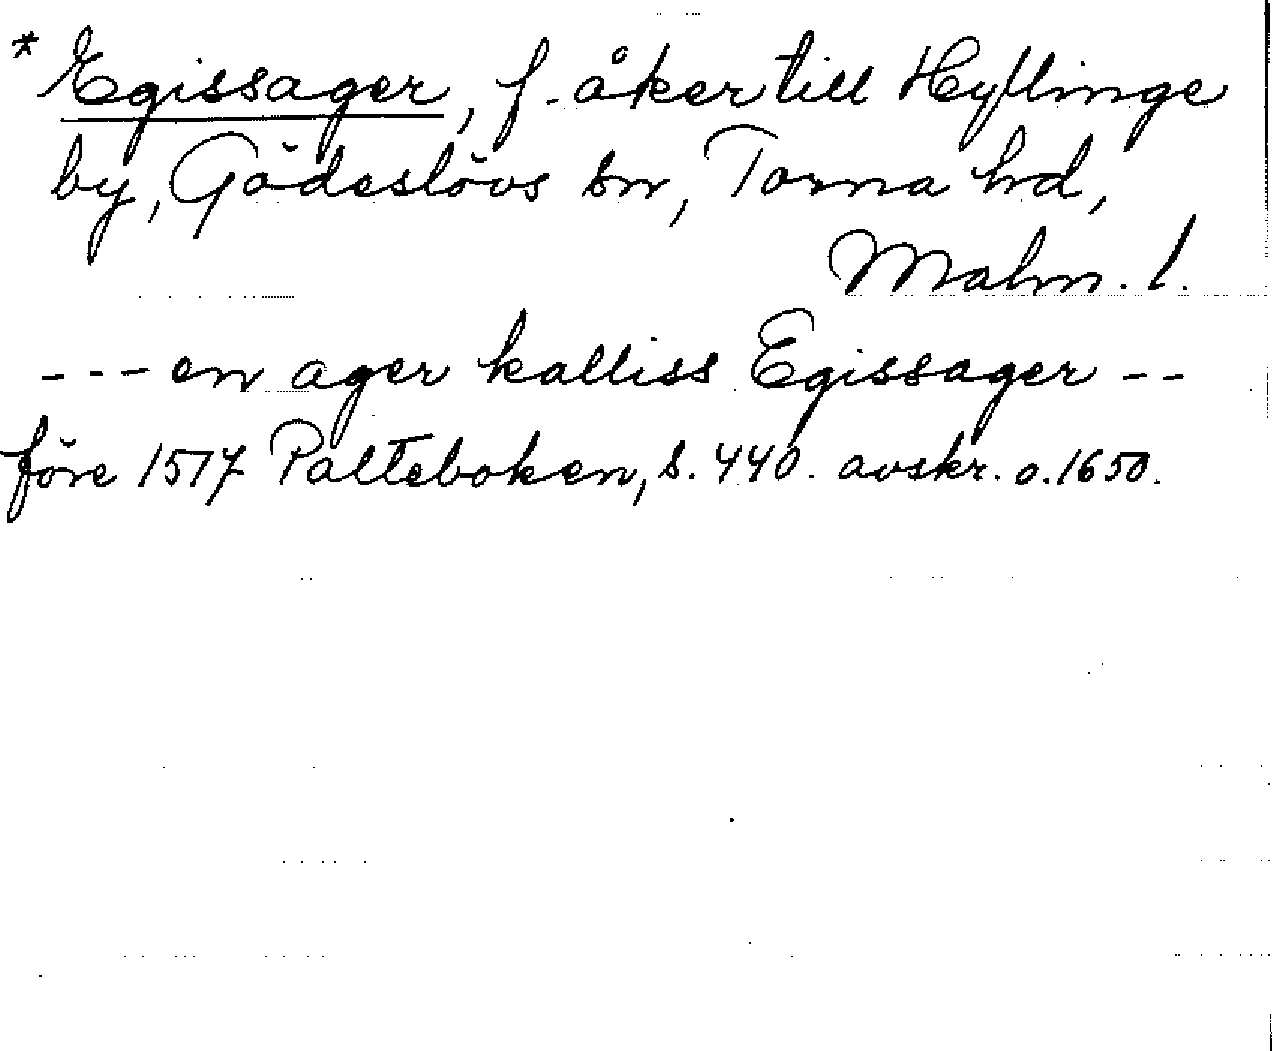 * Egissager, f. åker till Hyllinge
by, Gödeslövs sn, Torna hd,
Malm. l.
--- en ager kalliss Egissager --
före 1517 Palteboken, s. 440. avskr. o. 1650.